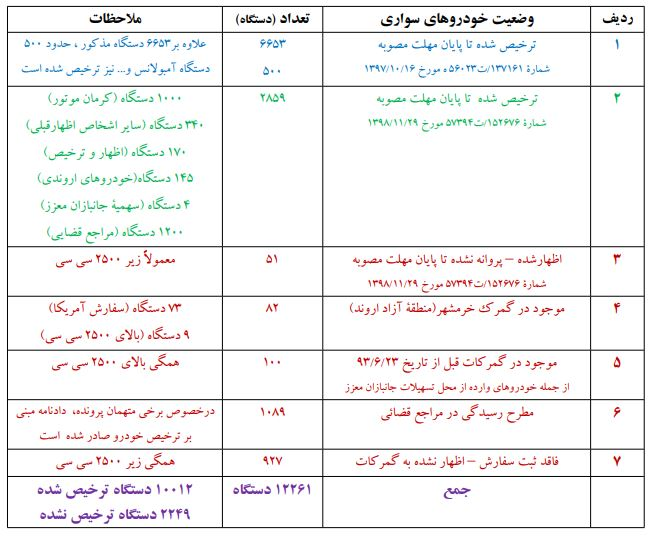 ردیف	وضعیت خودروهای سواری	تعداد (دستگاه)	ملاحظات
۱	ترخیص شده تا پایان مهلت مصوبه	۶۶۵۳	علاوه بر۶۶۵۳ دستگاه مذکور ، حدود ۵۰۰
شمارۀ ۱۳۷۱۶۱/ت۵۶۰۲۳ ه مورخ ۱۳۹۷/۱۰/۱۶	۵۰۰	دستگاه آمبولانس و... نیز ترخیص شده است
۲	ترخیص شده تا پایان مهلت مصوبه	۲۸۵۹	۱۰۰۰ دستگاه (کرمان موتور)
شمارۀ ۱۵۲۶۷۶/ت۵۷۳۹۴ مورخ ۱۳۹۸/۱۱/۲۹	۳۴۰ دستگاه (سایر اشخاص اظهارقبلی)
۱۷۰ دستگاه (اظهار و ترخیص)
۱۴۵ دستگاه(خودروهای اروندی)
۴ دستگاه (سهمیۀ جانبازان معزز)
۱۲۰۰ دستگاه (مراجع قضایی)
۳	اظهارشده – پروانه نشده تا پایان مهلت مصوبه	۵۱	معمولاً زیر ۲۵۰۰ سی سی
شمارۀ ۱۵۲۶۷۶/ت۵۷۳۹۴ مورخ ۱۳۹۸/۱۱/۲۹
۴	موجود در گمرک خرمشهر(منطقۀ آزاد اروند)	۸۲	۷۳ دستگاه (سفارش آمریکا)
۹ دستگاه (بالای ۲۵۰۰ سی سی)
۵	موجود در گمرکات قبل از تاریخ ۹۳/۶/۲۳	۱۰۰	همگی بالای ۲۵۰۰ سی سی
از جمله خودروهای وارده از محل تسهیلات جانبازان معزز
۶	مطرح رسیدگی در مراجع قضائی	۱۰۸۹	درخصوص برخی متهمان پرونده، دادنامه مبنی
بر ترخیص خودرو صادر شده است
۷	فاقد ثبت سفارش – اظهار نشده به گمرکات	۹۲۷	همگی زیر ۲۵۰۰ سی سی
جمع	۱۲۲۶۱ دستگاه	۱۰۰۱۲ دستگاه ترخیص شده
۲۲۴۹ دستگاه ترخیص نشده